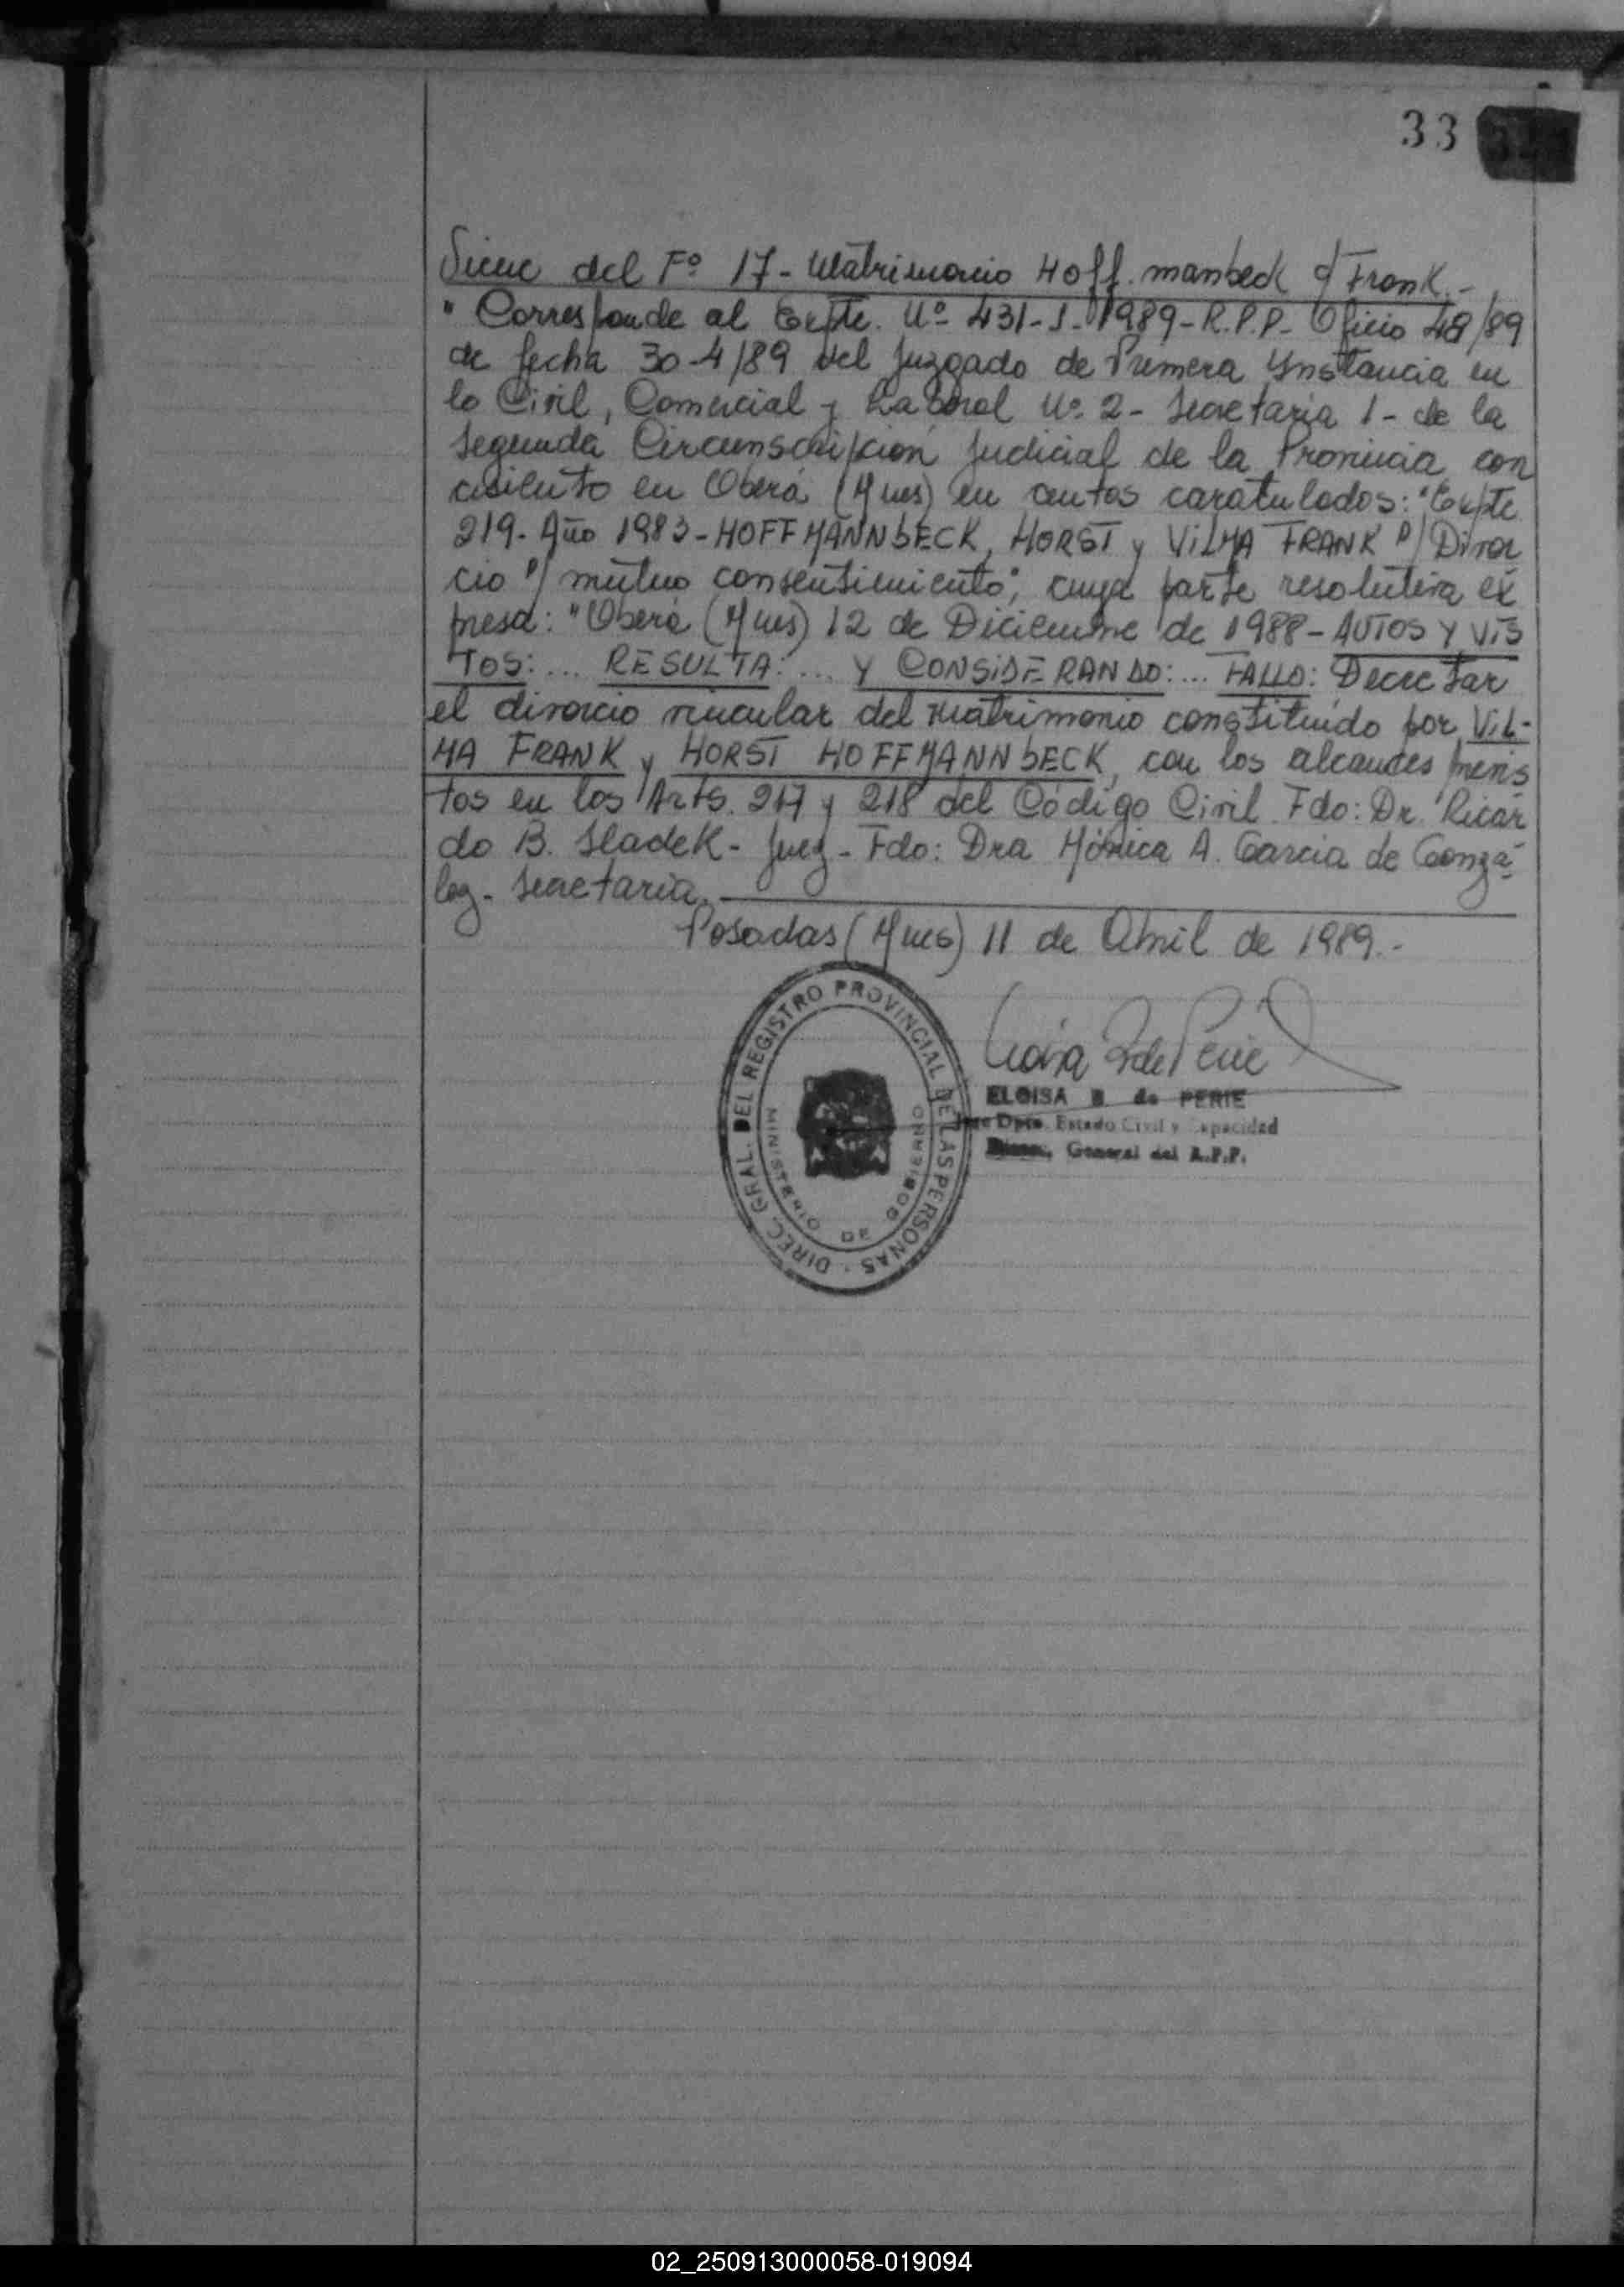 33
Viene del Fº 17 - Matrimonio Hoff. manbeck c/ Frank.-
" Corresponde al Expte. Nº 431-J-1989-R.P.P- Oficio 48/89
de fecha 30-4/89 del Juzgado de Primera Instancia en
lo Civil, Comercial y Laboral Nº 2 - Secretaría 1 - de la
Segunda Circunscripción Judicial de la Provincia con
asiento en Oberá (Mnes) en autos caratulados: "Expte
219- Año 1983 - HOFFMANNBECK, HORST y VILMA FRANK P/ Divor
cio P/ mútuo consentimiento", cuya parte resolutiva ex
presa: "Oberá (Mnes) 12 de Diciembre de 1988 - AUTOS Y VIS
TOS: ... RESULTA: ... Y CONSIDERANDO: ... FALLO: Decretar
el divorcio vincular del matrimonio constituído por VIL-
MA FRANK y HORST HOFFMANNBECK, con los alcances previs
tos en los Arts. 217 y 218 del Código Civil. Fdo: Dr. Ricar
do B. Sladek - Juez - Fdo: Dra Mónica A. García de Gonzá
lez - Secretaria.
Posadas (Mnes) 11 de Abril de 1989.-
DIREC. GRAL. DEL REGISTRO PROVINCIAL DE LAS PERSONAS
MINISTERIO DE GOBIERNO
ELOISA B de PERIE
Jefe Dpto. Estado Civil y Capacidad
Direcc. General del R.P.P.
02_250913000058-019094